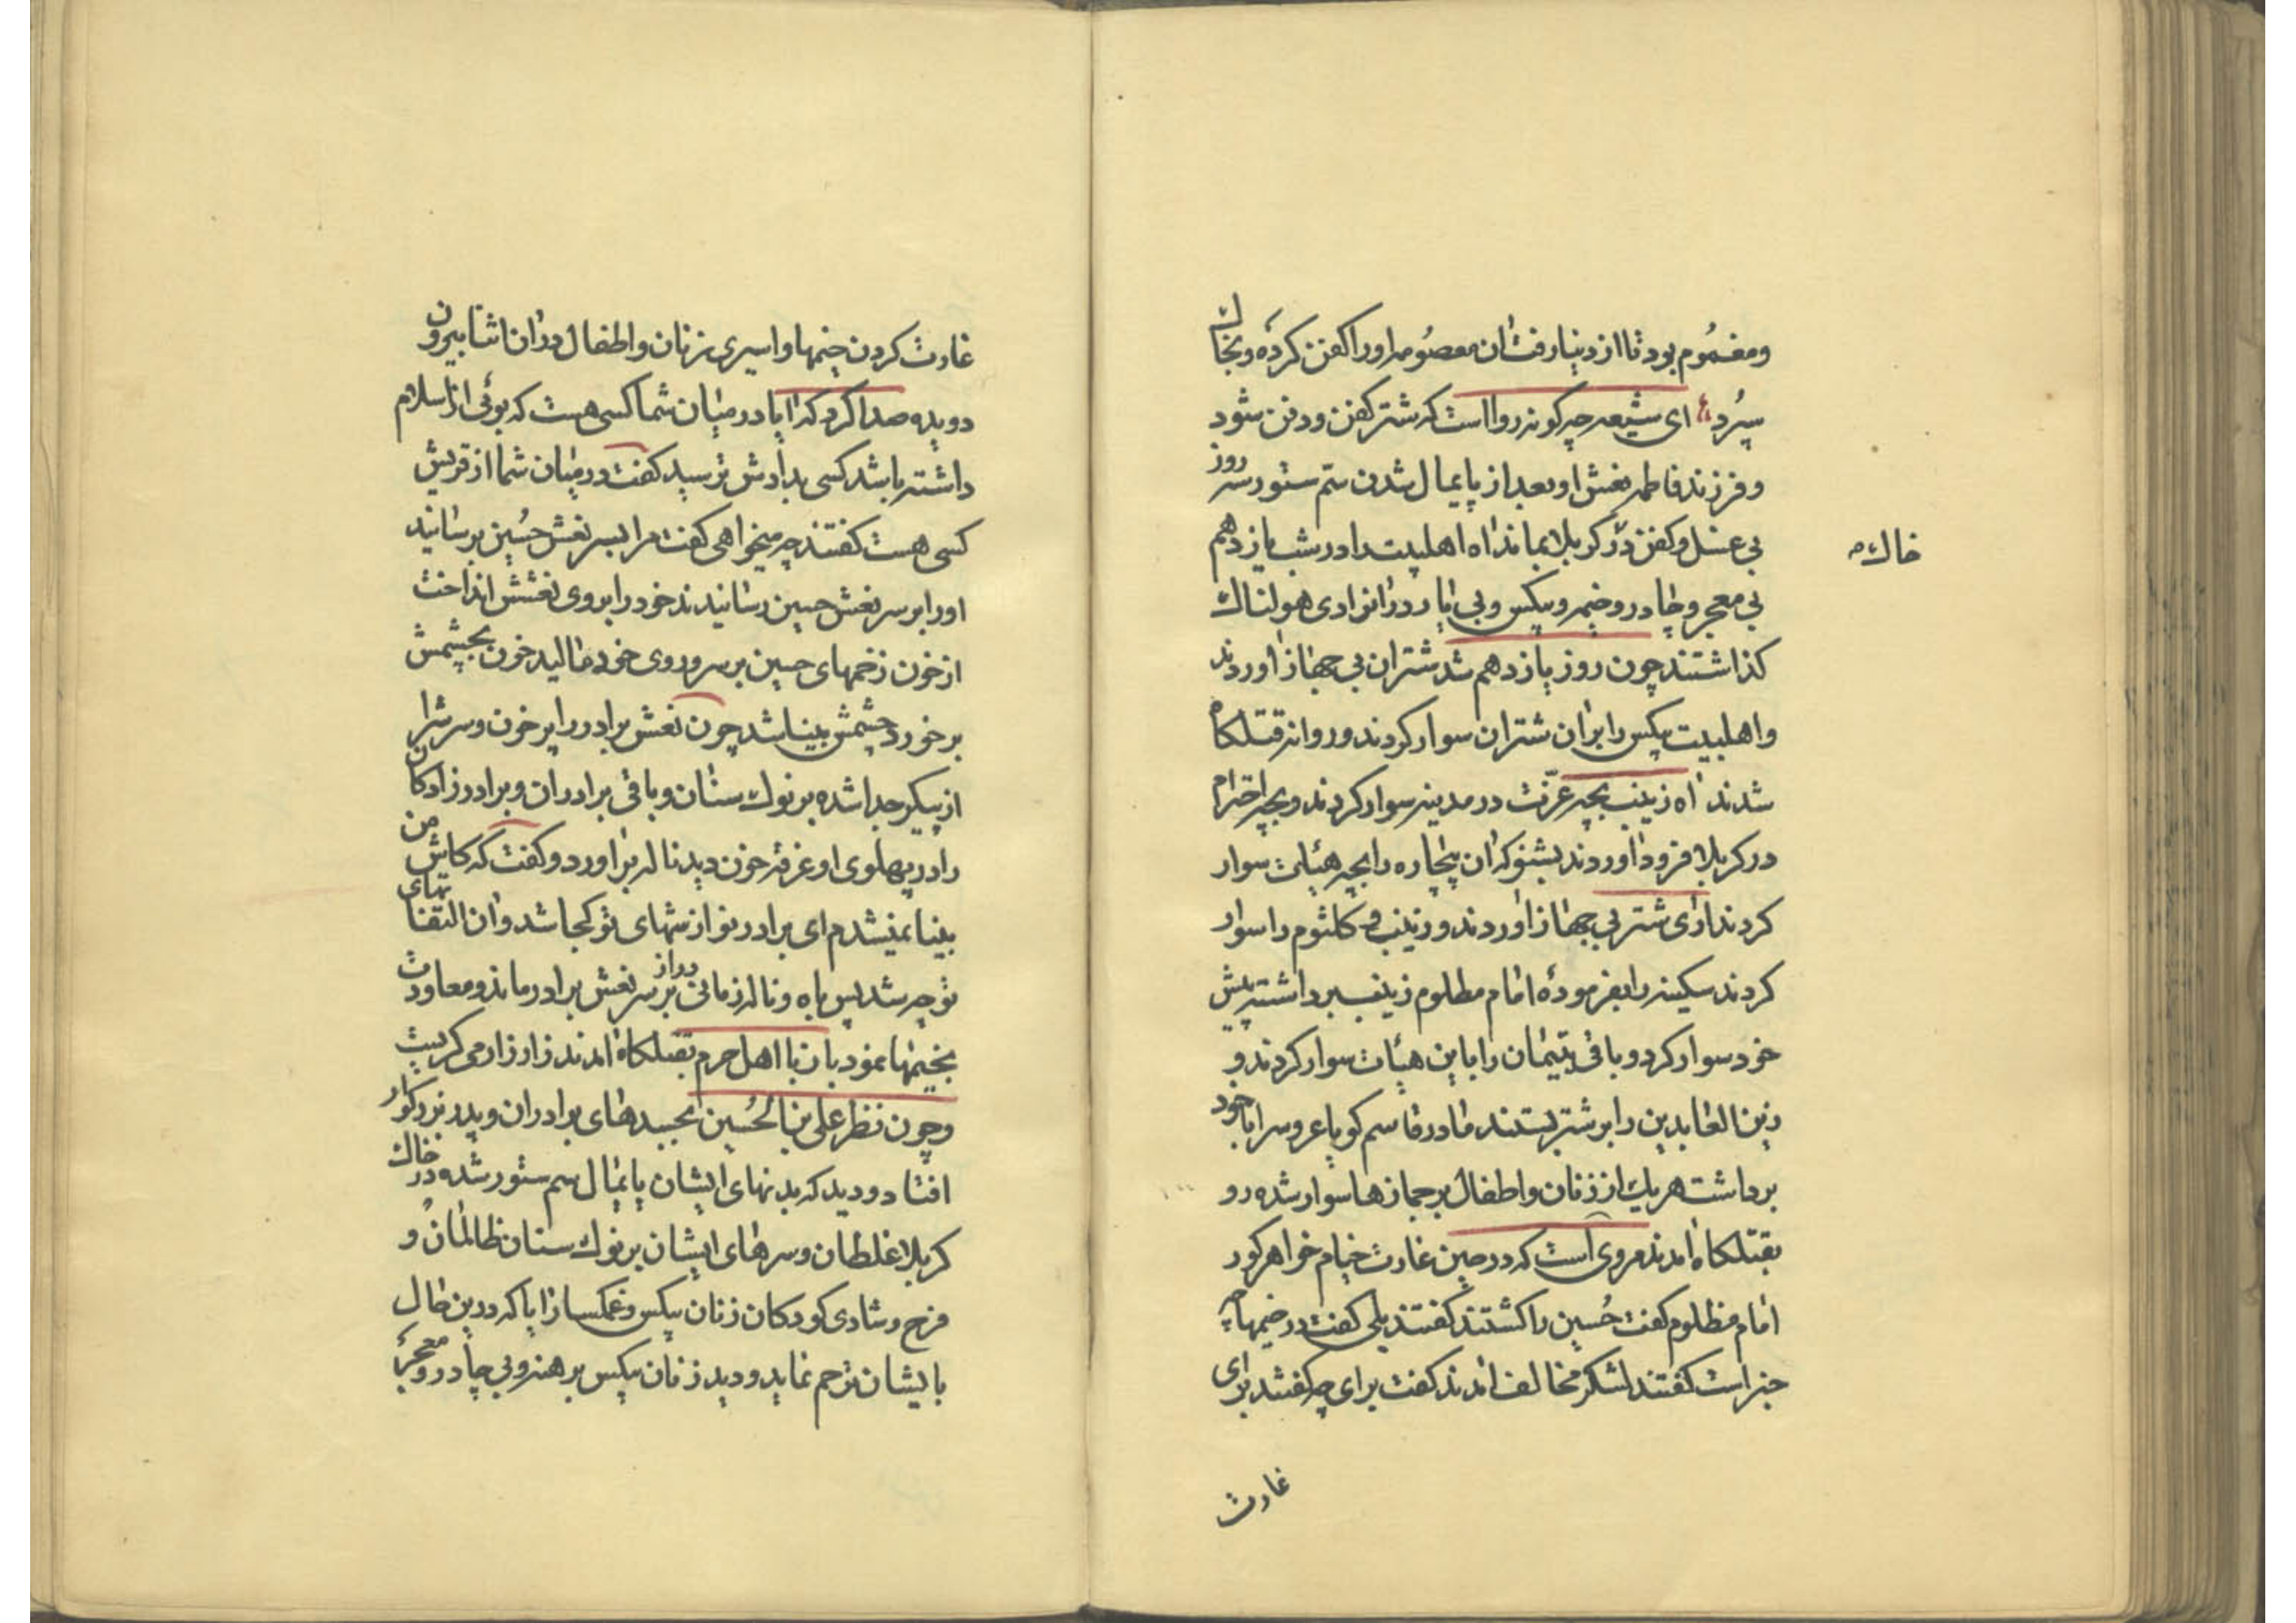 ومغموم بود تا از دنیا رفت ان معصومه اورا کفن کرده و بخاک
سپرد ای شیعه چه کونه روا است که شتر کفن و دفن شود
و فرزند فاطمه نعش او بعد از پایمال شدن سم ستور سه روز
بی غسل و کفن در کربلا بماند اه اهلبیت را در شب یازدهم
خاک
بی معجر و چادر و خیمه و بیکس و بی یار در ان وادی هولناک
کذاشتند چون روز یازدهم شد شتران بی جهاز اوردند
و اهلبیت بیکس را بران شتران سوار کردند و روانه قتلکاه
شدند اه زینب بچه عزت در مدینه سوار کردند و بچه احترام
در کربلا فرود اوردند بشنو که ان بیچاره را بچه هیئات سوار
کردند اری شتر بی جهاز اوردند و زینب و کلثوم را سوار
کردند سکینه را بفرموده امام مظلوم زینب برداشته پیش
خود سوار کرد و باقی یتیمان را باین هیئات سوار کردند و
زین العابدین را بر شتر بستند مادر قاسم کویا عروس را با خود
برداشت هریک از زنان و اطفال بر جمازها سوار شده رو
بقتلکاه امدند مروی است که در حین غارت خیام خواهر کور
امام مظلوم کفت حسین را کشتند کفتند بلی کفت در خیمها چه
خبر است کفتند لشکر مخالف امدند کفت برای چه کفتند برای
غارت
غارت کردن خیمها و اسیری زنان و اطفال دران اثنا بیرون
دویده صدا کرد که ایا در میان شما کسی هست که بوئی از اسلام
داشته باشد کسی بدادش نرسید کفت در میان شما از قریش
کسی هست کفتند چه میخواهی کفت مرا بسر نعش حسین برسانید
اورا بر سر نعش حسین رسانیدند خود را بروی نعشش انداخت
از خون زخمهای حسین بر سر و روی خود مالید خون بچشمش
برخورد چشمش بینا شد چون نعش برادر را پر خون و سرش را
از پیکر جدا شده بر نوک سنان و باقی برادران و برادرزادکان
را در پهلوی او غرقه خون دید ناله براورد و کفت که کاش من
بینا نمیشدم ای برادر نوازشهای تو کجا شد و ان التفاتهای
تو چه شد پس باه و ناله زمانی دراز بر سر نعش برادر ماند و معاودت
بخیمها نمود بان با اهل حرم بقتلکاه امدند زار زار می کریست
و چون نظر علی بن الحسین بجسدهای برادران و پدر بزرکوار
افتاد و دید که بدنهای ایشان پایمال سم ستور شده در خاک
کربلا غلطان و سرهای ایشان بر نوک سنان ظالمان و
فرح و شادی کودکان زنان بیکس و غمکسار ایا که درین حال
بایشان ترحم نماید و دید زنان بیکس برهنه و بی چادر و معجر